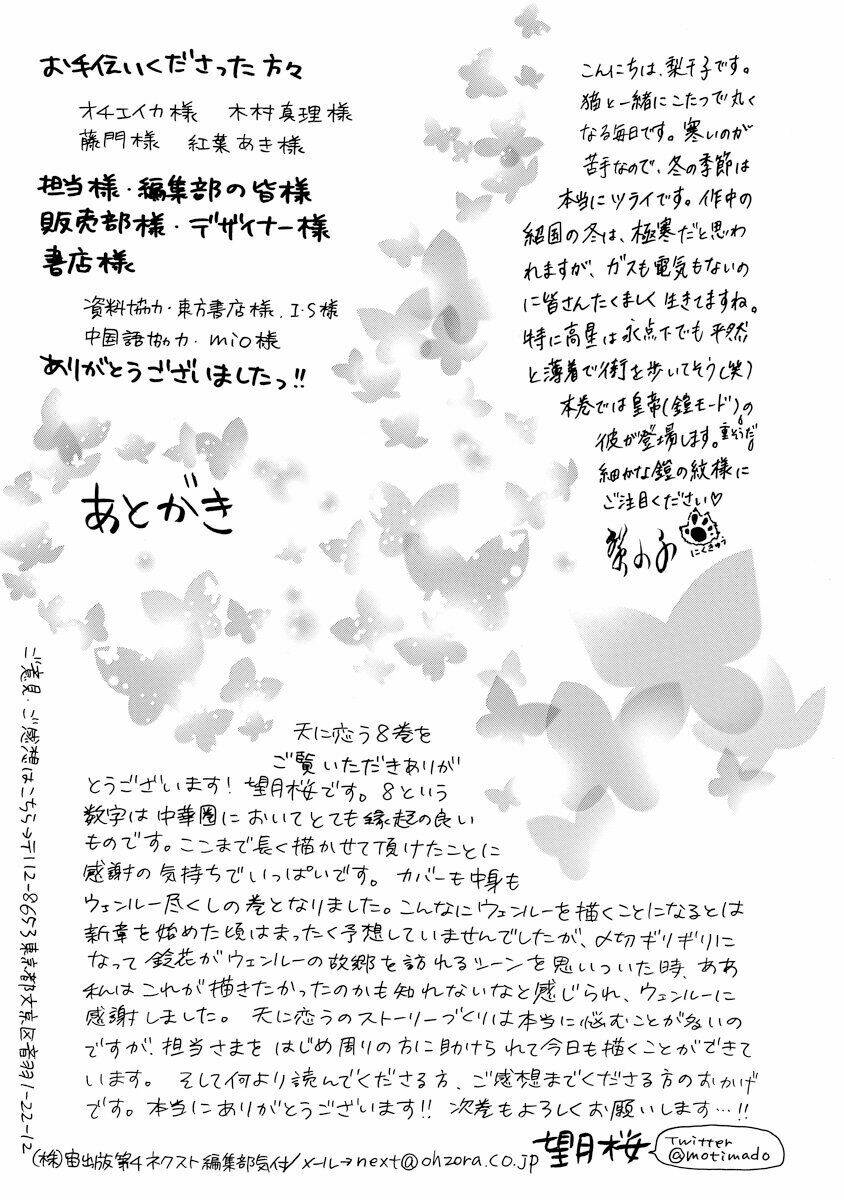 お手伝いくださった方々
オチエイカ様 木村真理様
藤門様 紅葉あき様
担当様・編集部の皆様
販売部様・デザイナー様
書店様
資料協力・東方書店様、I・S様
中国語協力・mio様
ありがとうございましたっ!!
あとがき
こんにちは、梨千子です。
猫と一緒にこたつで丸く
なる毎日です。寒いのが
苦手なので、冬の季節は
本当にツライです。作中の
紹国の冬は、極寒だと思わ
れますが、ガスも電気もないの
に皆さんたくましく生きてますね。
特に高星は氷点下でも平然
と薄着で街を歩いてそう(笑)
本巻では皇帝(鎧モード)の
重そうだ
彼が登場します。
細かな鎧の紋様に
ご注目ください♡
にくきゅう
天に恋う8巻を
ご覧いただきありが
とうございます!望月桜です。8という
数字は中華圏においてとても縁起の良い
ものです。ここまで長く描かせて頂けたことに
感謝の気持ちでいっぱいです。カバーも中身も
ウェンルー尽くしの巻となりました。こんなにウェンルーを描くことになるとは
新章を始めた頃はまったく予想していませんでしたが、〆切ギリギリに
なって鈴花がウェンルーの故郷を訪れるシーンを思いついた時、ああ
私はこれが描きたかったのかも知れないなと感じられ、ウェンルーに
感謝しました。天に恋うのストーリーづくりは本当に悩むことが多いの
ですが、担当さまをはじめ周りの方に助けられて今日も描くことができて
います。そして何より読んでくださる方、ご感想までくださる方のおかげ
です。本当にありがとうございます!!次巻もよろしくお願いします…!!
望月桜
Twitter
@motimado
ご意見・ご感想はこちら→〒112-8653東京都文京区音羽1-22-12
(株)宙出版第4ネクスト編集部気付/メール→next@ohzora.co.jp